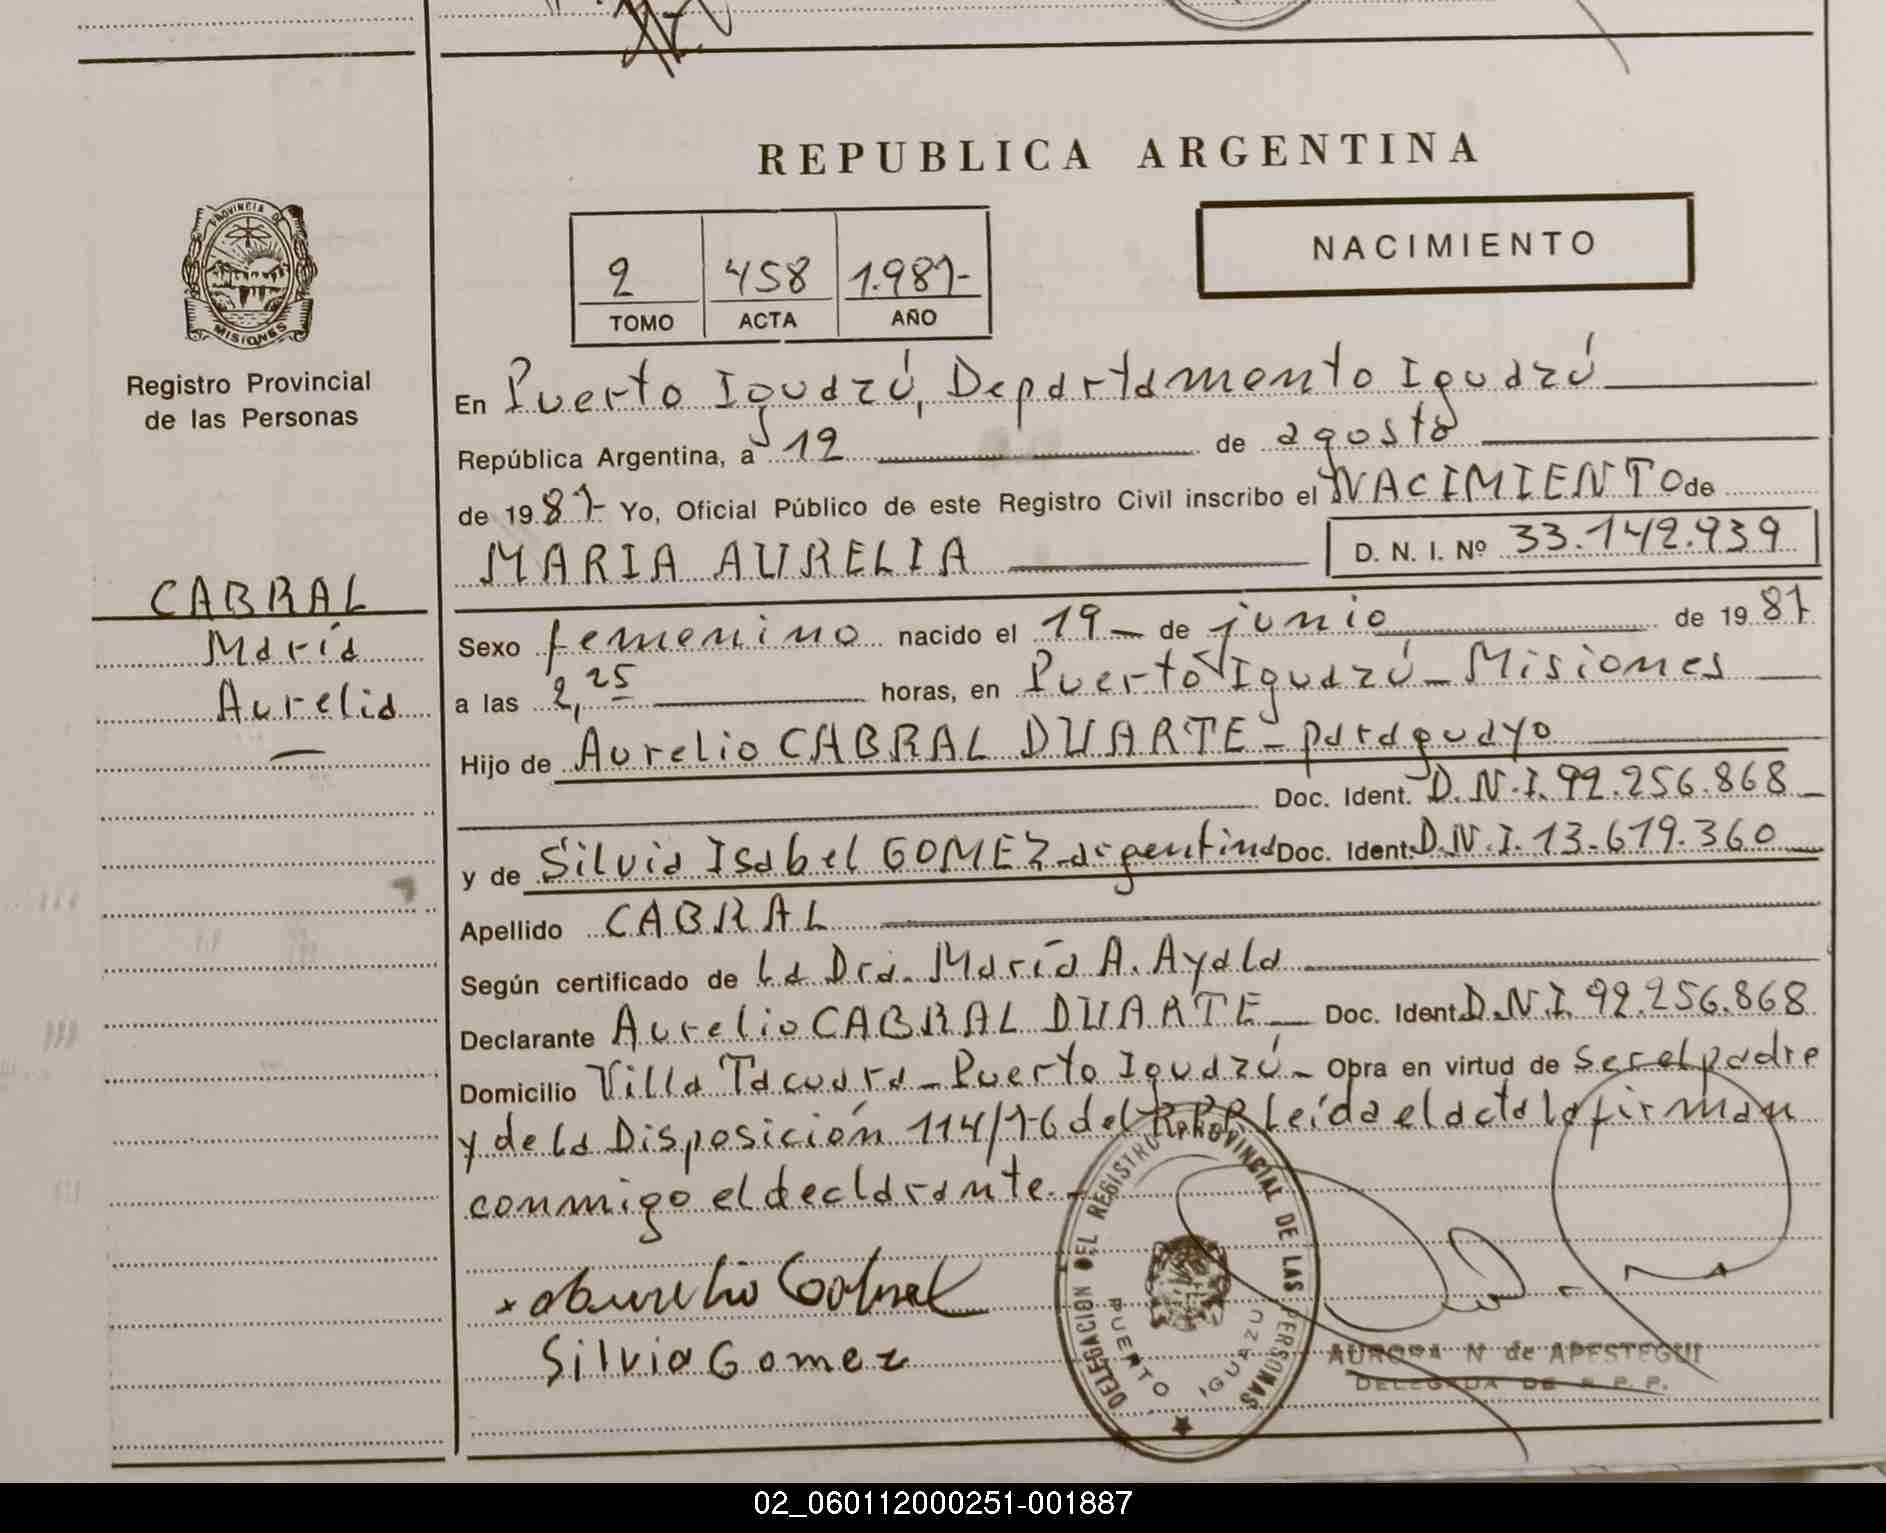 REPUBLICA ARGENTINA
PROVINCIA DE
MISIONES
Registro Provincial
de las Personas
NACIMIENTO
2 458 1.987-
TOMO ACTA AÑO
En Puerto Iguazú, Departamento Iguazú
República Argentina, a 12 de agosto
de 1987- Yo, Oficial Público de este Registro Civil inscribo el NACIMIENTO de
MARIA AURELIA D. N. I. Nº 33.142.939
CABRAL
María
Aurelia
Sexo femenino nacido el 19- de junio de 1987
a las 2,25 horas, en Puerto Iguazú- Misiones
Hijo de Aurelio CABRAL DUARTE- paraguayo
Doc. Ident. D.N.I. 92.256.868
y de Silvia Isabel GOMEZ-argentina Doc. Ident. D.N.I. 13.679.360
Apellido CABRAL
Según certificado de La Dra. María A. Ayala
Declarante Aurelio CABRAL DUARTE Doc. Ident. D.N.I. 92.256.868
Domicilio Villa Tacuara- Puerto Iguazú- Obra en virtud de ser el padre
y de la Disposición 114/76 del R.P.P. Leída el acta la firman
conmigo el declarante.-
x Aurelio Cabral
Silvia Gomez
DELEGACION DEL REGISTRO PROVINCIAL DE LAS PERSONAS
PUERTO IGUAZU
AURORA N de APESTEGUI
DELEGADA DE R.P.P.
02_060112000251-001887